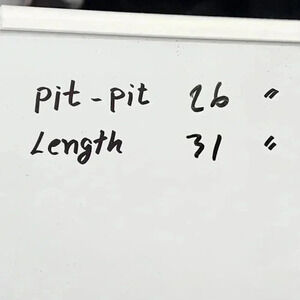 Pit-pit 26 "
Length 31 "